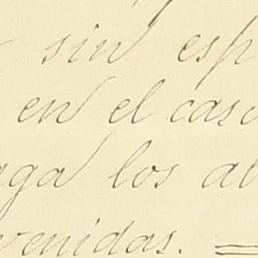 sin esp
en el caso
ga los al
venidas. =